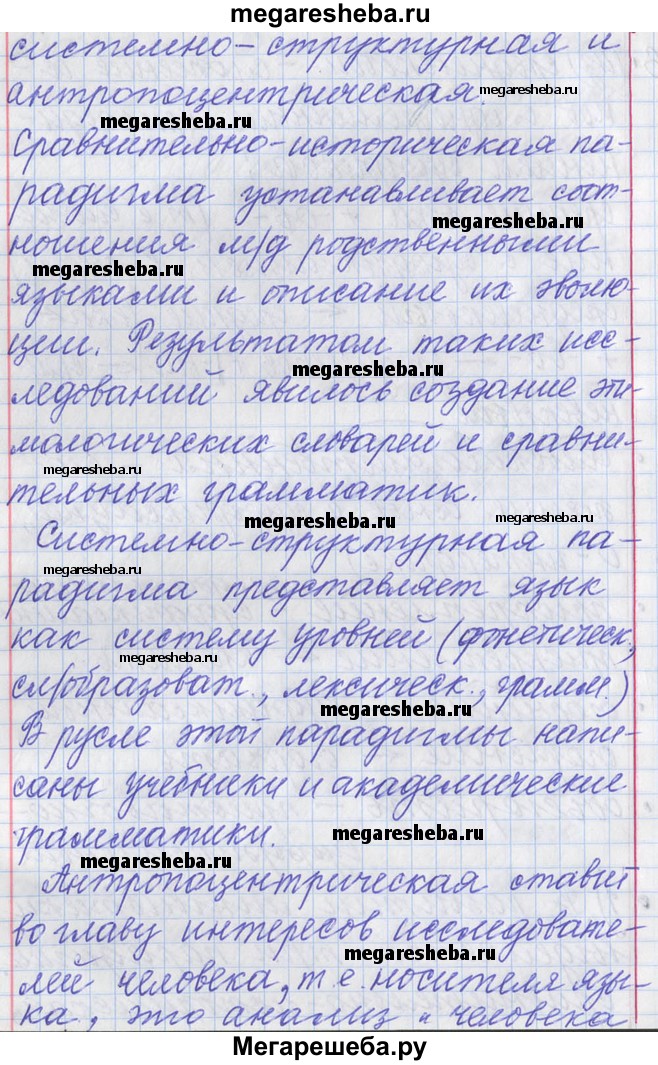 megaresheba.ru
системно-структурная и
антропоцентрическая.
megaresheba.ru
megaresheba.ru
Сравнительно-историческая па-
радигма устанавливает соот-
megaresheba.ru
ношения м/д родственными
megaresheba.ru
языками и описание их эволю-
ции. Результатом таких исс-
megaresheba.ru
ледований явилось создание эти-
мологических словарей и сравни-
megaresheba.ru
тельных грамматик.
megaresheba.ru
megaresheba.ru
Системно-структурная па-
megaresheba.ru
радигма представляет язык
как систему уровней (фонетическ,
megaresheba.ru
сл/образоват., лексическ., грамм.)
megaresheba.ru
В русле этой парадигмы напи-
саны учебники и академические
грамматики.
megaresheba.ru
megaresheba.ru
Антропоцентрическая ставит
во главу интересов исследовате-
megaresheba.ru
лей человека, т.е. носителя язы-
ка, это анализ "человека
Мегарешеба.ру